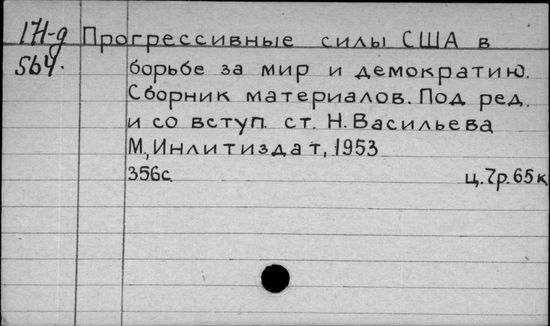 171-д Прогрессивные силы США в
564. борьбе за мир и демократию.
Сборник материалов. Под ред.
и со вступ. ст. Н. Васильева
М., Инлитиздат, 1953
356с. ц. 7р. 65к